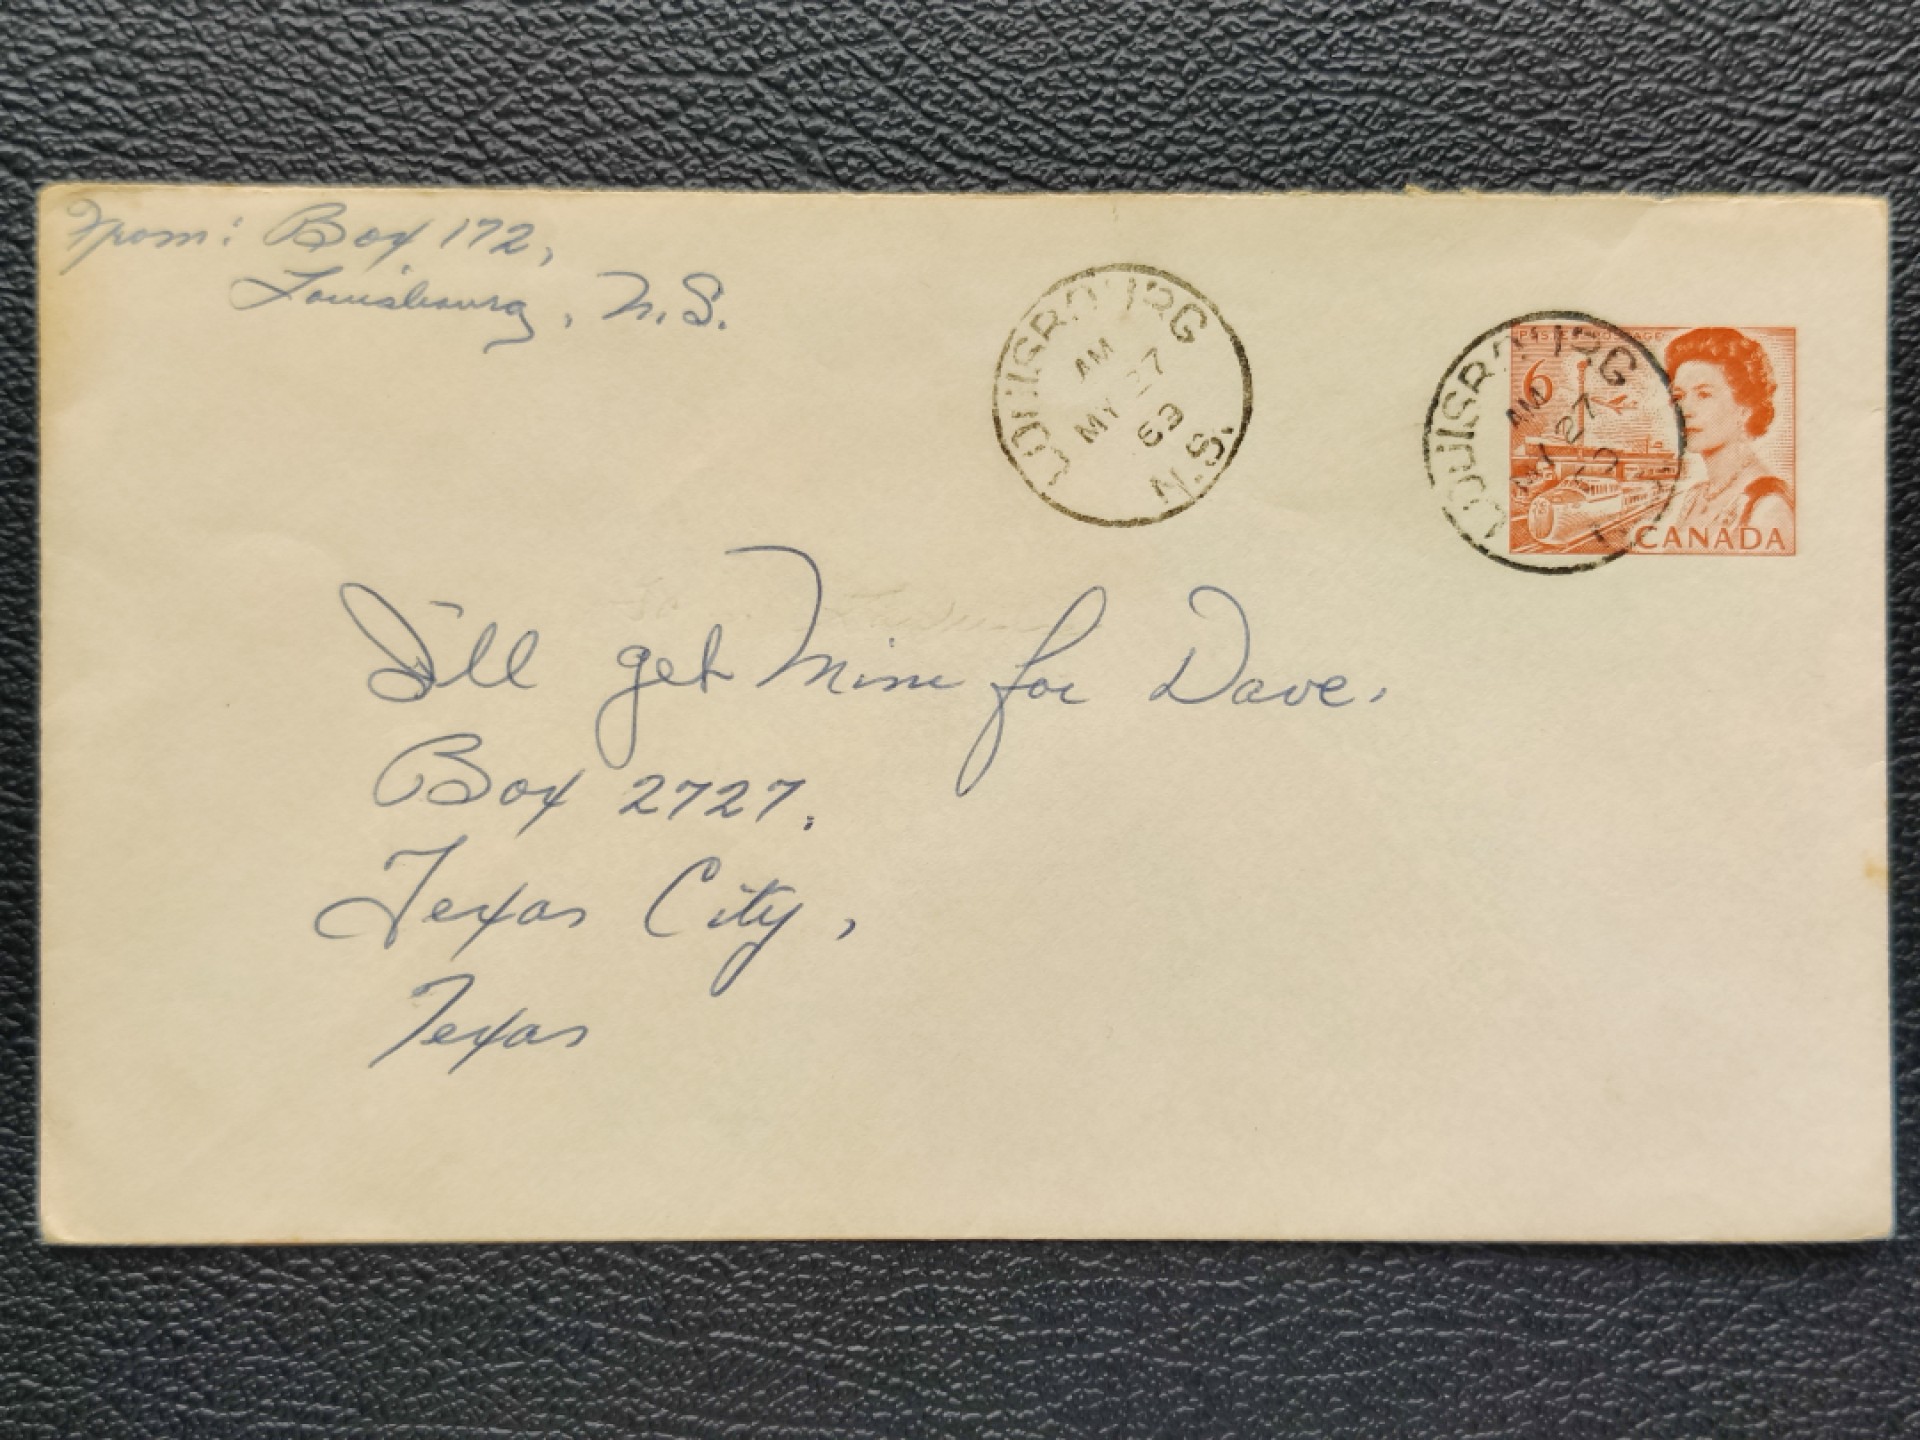 From: Box 172,
Louisbourg, N.S.
LOUISBOURG
AM
MY 27
69
N.S.
LOUISBOURG
AM
MY 27
POSTES POSTAGE
6
CANADA
I'll get Mine for Dave.
Box 2727,
Texas City,
Texas